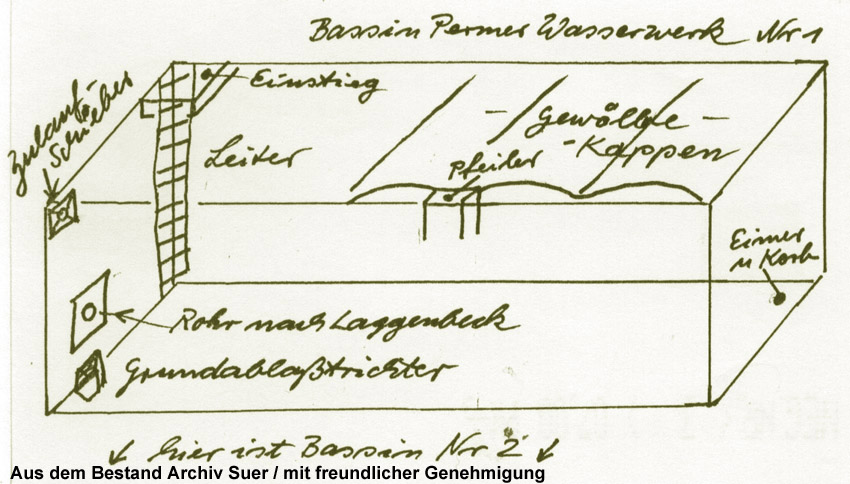 Bassin Permer Wasserwerk Nr 1
Zulauf-
Schieber
Einstieg
Leiter
- Gewölbe -
- Kappen
Pfeiler
Eimer
u Korb
Rohr nach Laggenbeck
Grundablaßtrichter
↓ hier ist Bassin Nr 2 ↓
Aus dem Bestand Archiv Suer / mit freundlicher Genehmigung